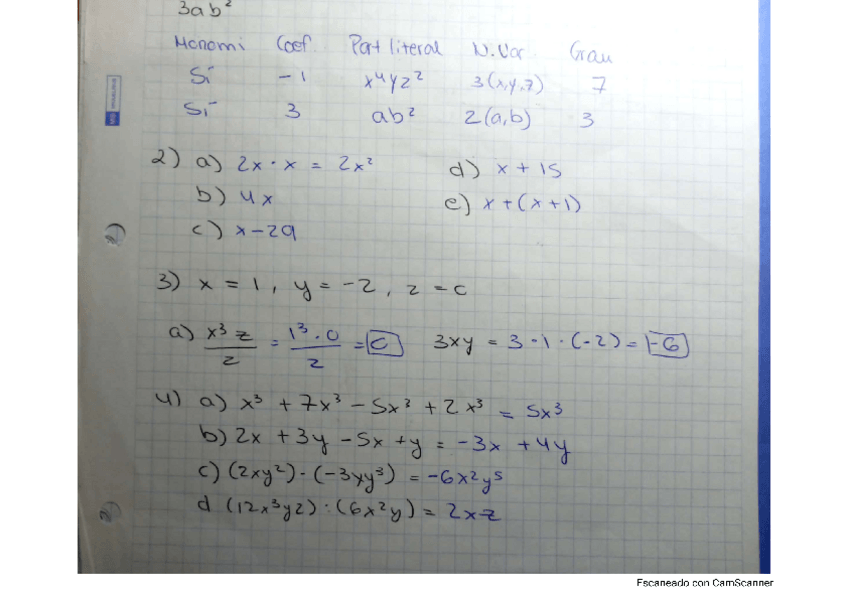 3ab²
Monomi Coef. Part literal N.Var Grau
Sí -1 x⁴yz² 3(x,y,z) 7
Sí 3 ab² 2(a,b) 3
2) a) 2x·x = 2x² d) x + 15
b) 4x e) x+(x+1)
c) x-29
3) x = 1, y = -2, z = 0
a) x³z/2 = 1³·0/2 = 0 3xy = 3·1·(-2) = -6
4) a) x³ + 7x³ - 5x³ + 2x³ = 5x³
b) 2x + 3y - 5x + y = -3x + 4y
c) (2xy²)·(-3xy³) = -6x²y⁵
d (12x³yz) : (6x²y) = 2xz
Escaneado con CamScanner